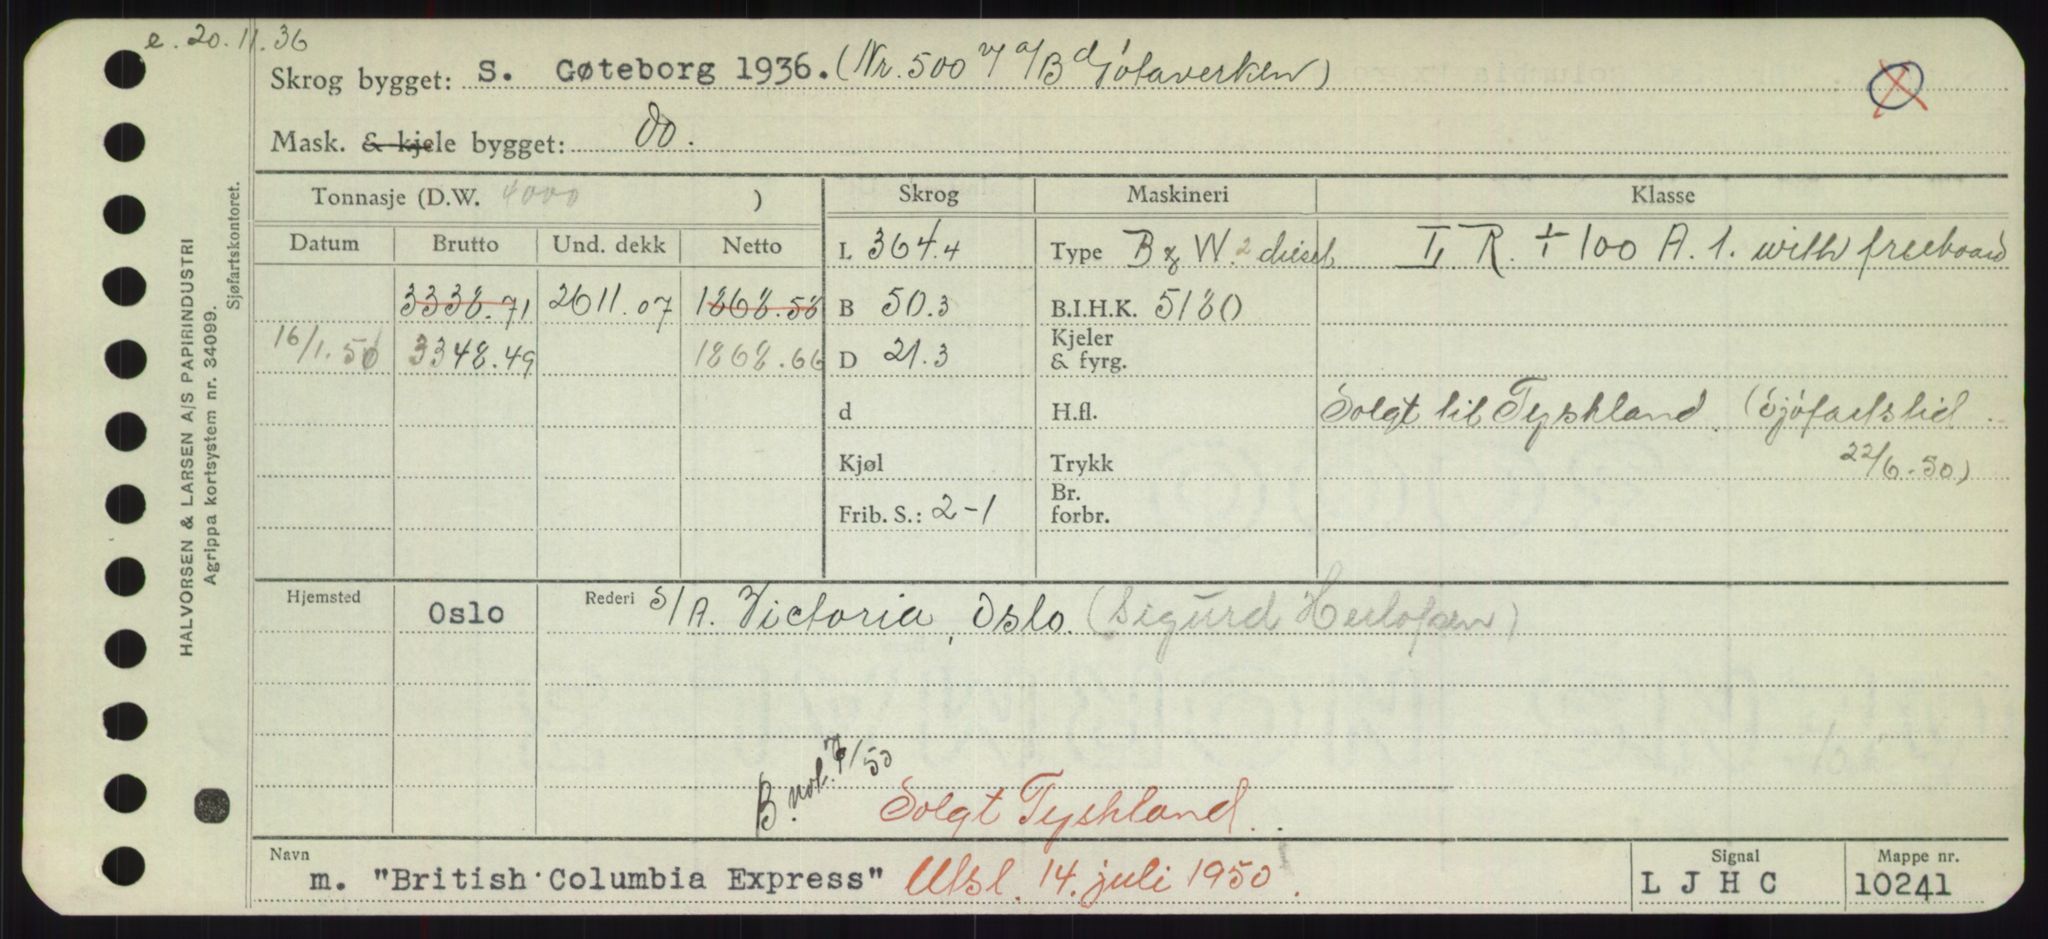 e. 20.11.36
Skrog bygget: S. Gøteborg 1936. (Nr. 500 v/ a/B Götaverken)
Mask. & kjele bygget: Do.
Tonnasje (D.W. 4000 )
Skrog
Maskineri
Klasse
Datum
Brutto
Und. dekk
Netto
L 364.4
Type B & W. 2 diesel
L. R. + 100 A. 1. with freeboard
3338.71
2611.07
1868.58
B 50.3
B.I.H.K. 5180
16/1.50
3348.49
1868.66
D 21.3
Kjeler & fyrg.
d
H.fl.
Solgt til Tyskland. (Sjöfartstid..
22/6.50)
Kjøl
Trykk
Frib. S.: 2-1
Br. forbr.
Hjemsted
Oslo
Rederi S/A. Victoria, Oslo. (Sigurd Herlofsen)
B. not. 7/50
Solgt Tyskland..
Navn
m. "British Columbia Express" Utsl. 14. juli 1950.
Signal
L J H C
Mappe nr.
10241
HALVORSEN & LARSEN A/S PAPIRINDUSTRI
Agrippa kortsystem nr. 34099.
Sjøfartskontoret.